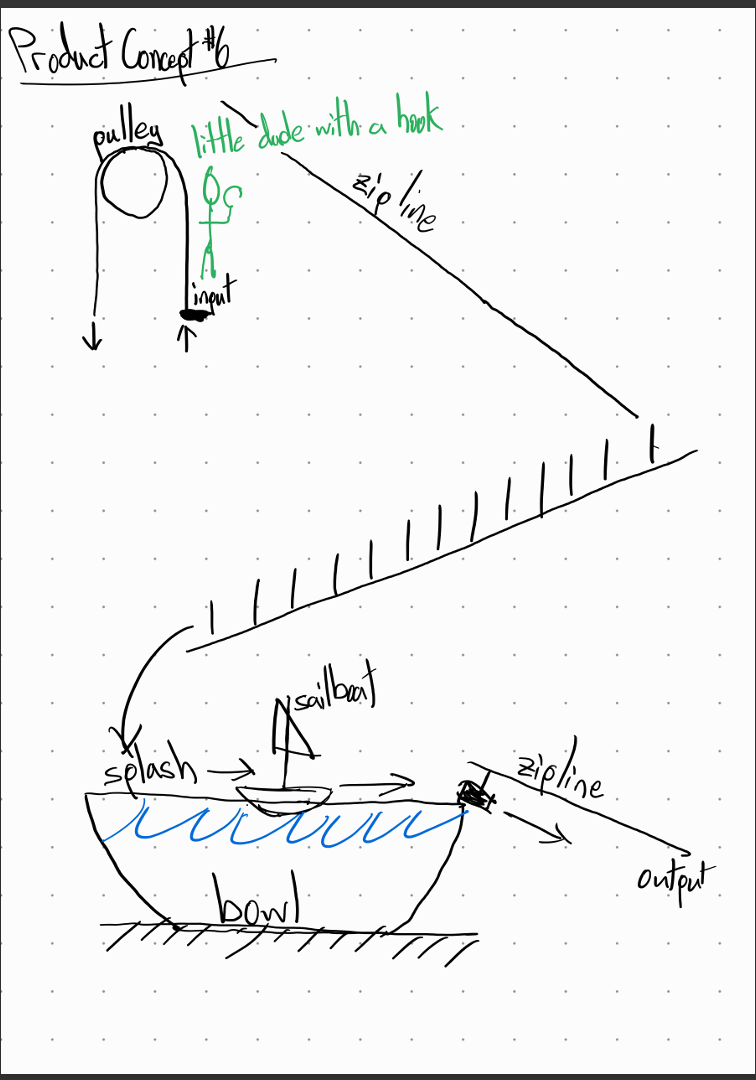 Product Concept #6
pulley
little dude with a hook
zip line
input
sailboat
splash
zipline
output
bowl